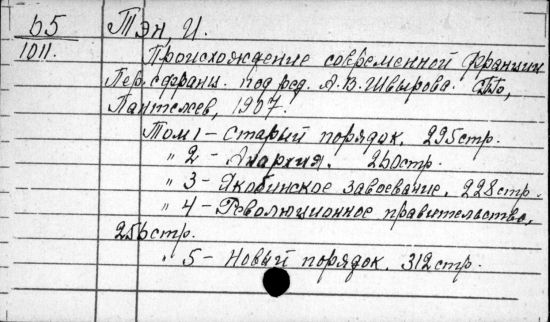 б5 Тэн, И.
1011. Происхождение современной Франции
Пер. с франц. под ред. А.В. Швырова. СПб,
Пантелеев, 1907.
Том 1 – Старый порядок. 295 стр.
" 2 – Анархия. 260 стр.
" 3 – Якобинское завоевание. 228 стр.
" 4 – Революционное правительство.
256 стр.
" 5 – Новый порядок. 312 стр.